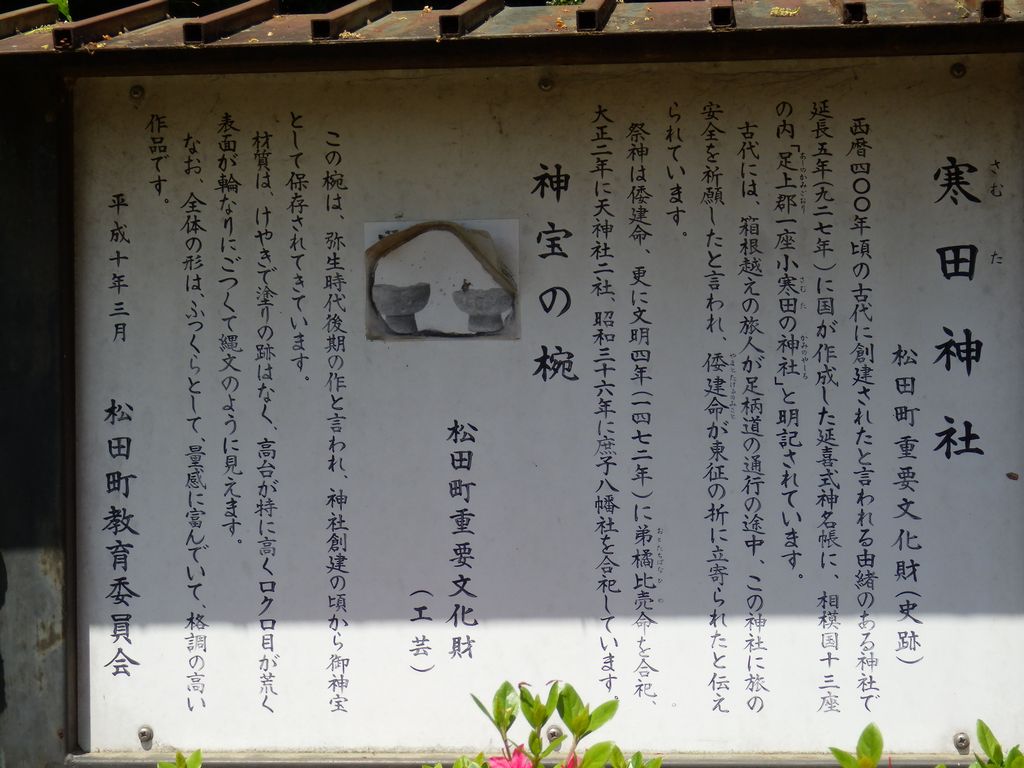 寒田神社
さむ た
松田町重要文化財(史跡)
西暦四〇〇年頃の古代に創建されたと言われる由緒のある神社で
延長五年(九二七年)に国が作成した延喜式神名帳に、相模国十三座
の内「足上郡一座小寒田の神社」と明記されています。
古代には、箱根越えの旅人が足柄道の通行の途中、この神社に旅の
安全を祈願したと言われ、倭建命が東征の折に立寄られたと伝え
られています。
祭神は倭建命、更に文明四年(一四七二年)に弟橘比売命を合祀、
大正二年に天神社二社、昭和三十六年に庶子八幡社を合祀しています。
神宝の椀
松田町重要文化財
(工芸)
この椀は、弥生時代後期の作と言われ、神社創建の頃から御神宝
として保存されてきています。
材質は、けやきで塗りの跡はなく、高台が特に高くロクロ目が荒く
表面が輪なりにごつくて縄文のように見えます。
なお、全体の形は、ふっくらとして、量感に富んでいて、格調の高い
作品です。
平成十年三月 松田町教育委員会